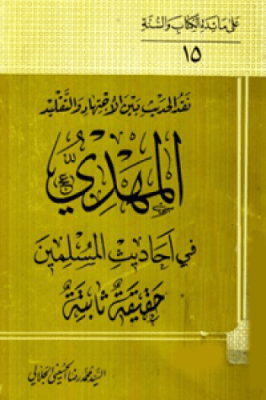 على مائدة الكتاب والسنة
١٥
نقد الحديث بين الاجتهاد والتقليد
المهدي (ع)
في أحاديث المسلمين
حقيقة ثابتة
السيد محمد رضا الحسيني الجلالي